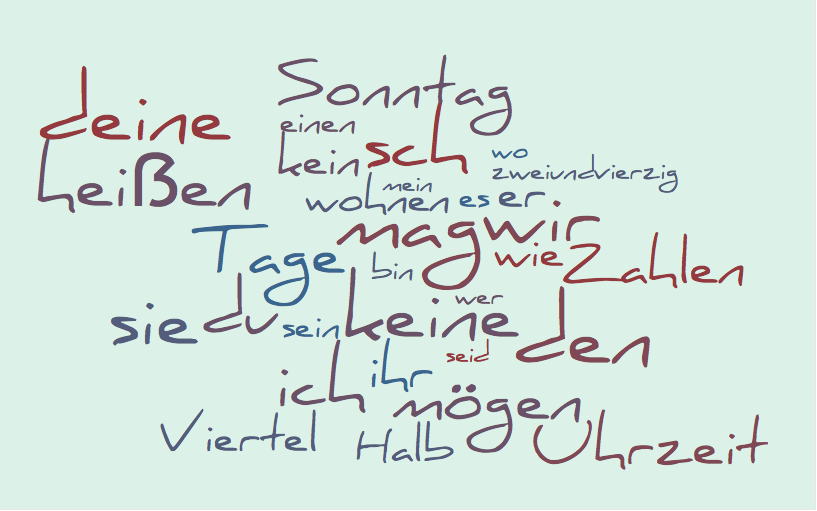 Sonntag
deine
einen
kein sch
wo
zweiundvierzig
heißen
mein
wohnen es er
mag wir
Tage
wie Zahlen
bin
wer
sie du sein keine den
seid
ich ihr
mögen
Viertel Halb Uhrzeit